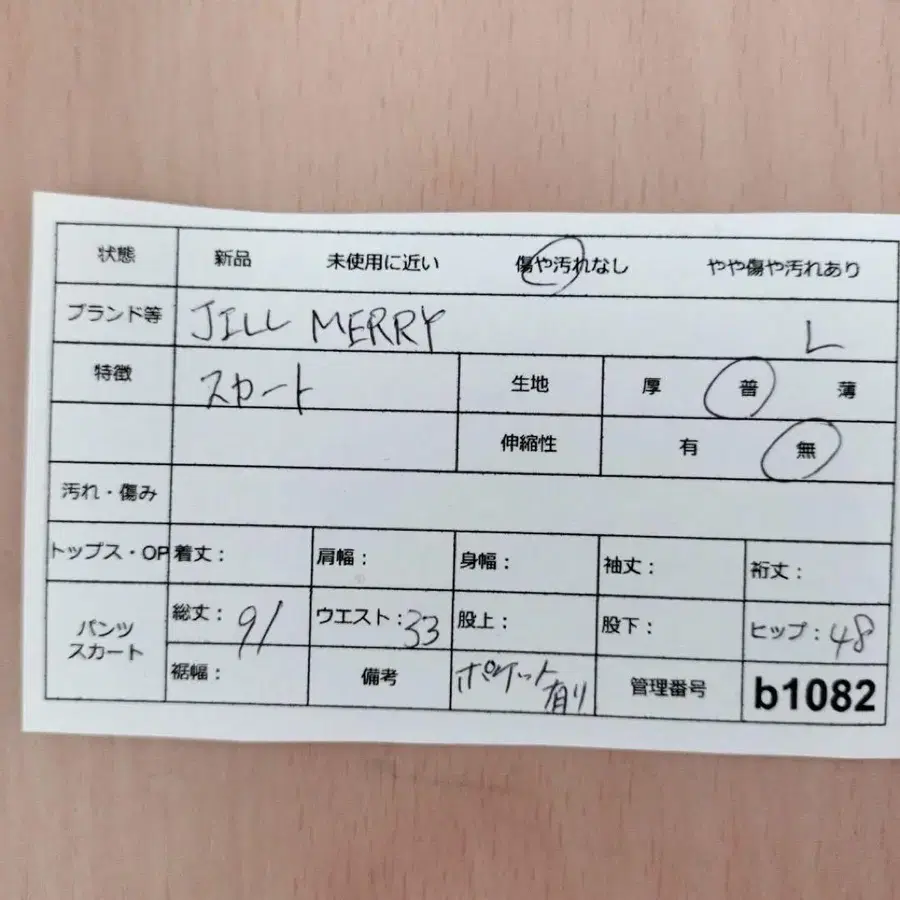 状態 新品 未使用に近い 傷や汚れなし やや傷や汚れあり
ブランド等 JILL MERRY L
特徴 スカート 生地 厚 普 薄
伸縮性 有 無
汚れ・傷み
トップス・OP 着丈： 肩幅： 身幅： 袖丈： 裄丈：
パンツ スカート 総丈：91 ウエスト：33 股上： 股下： ヒップ：48
裾幅： 備考 ポケット有り 管理番号 b1082